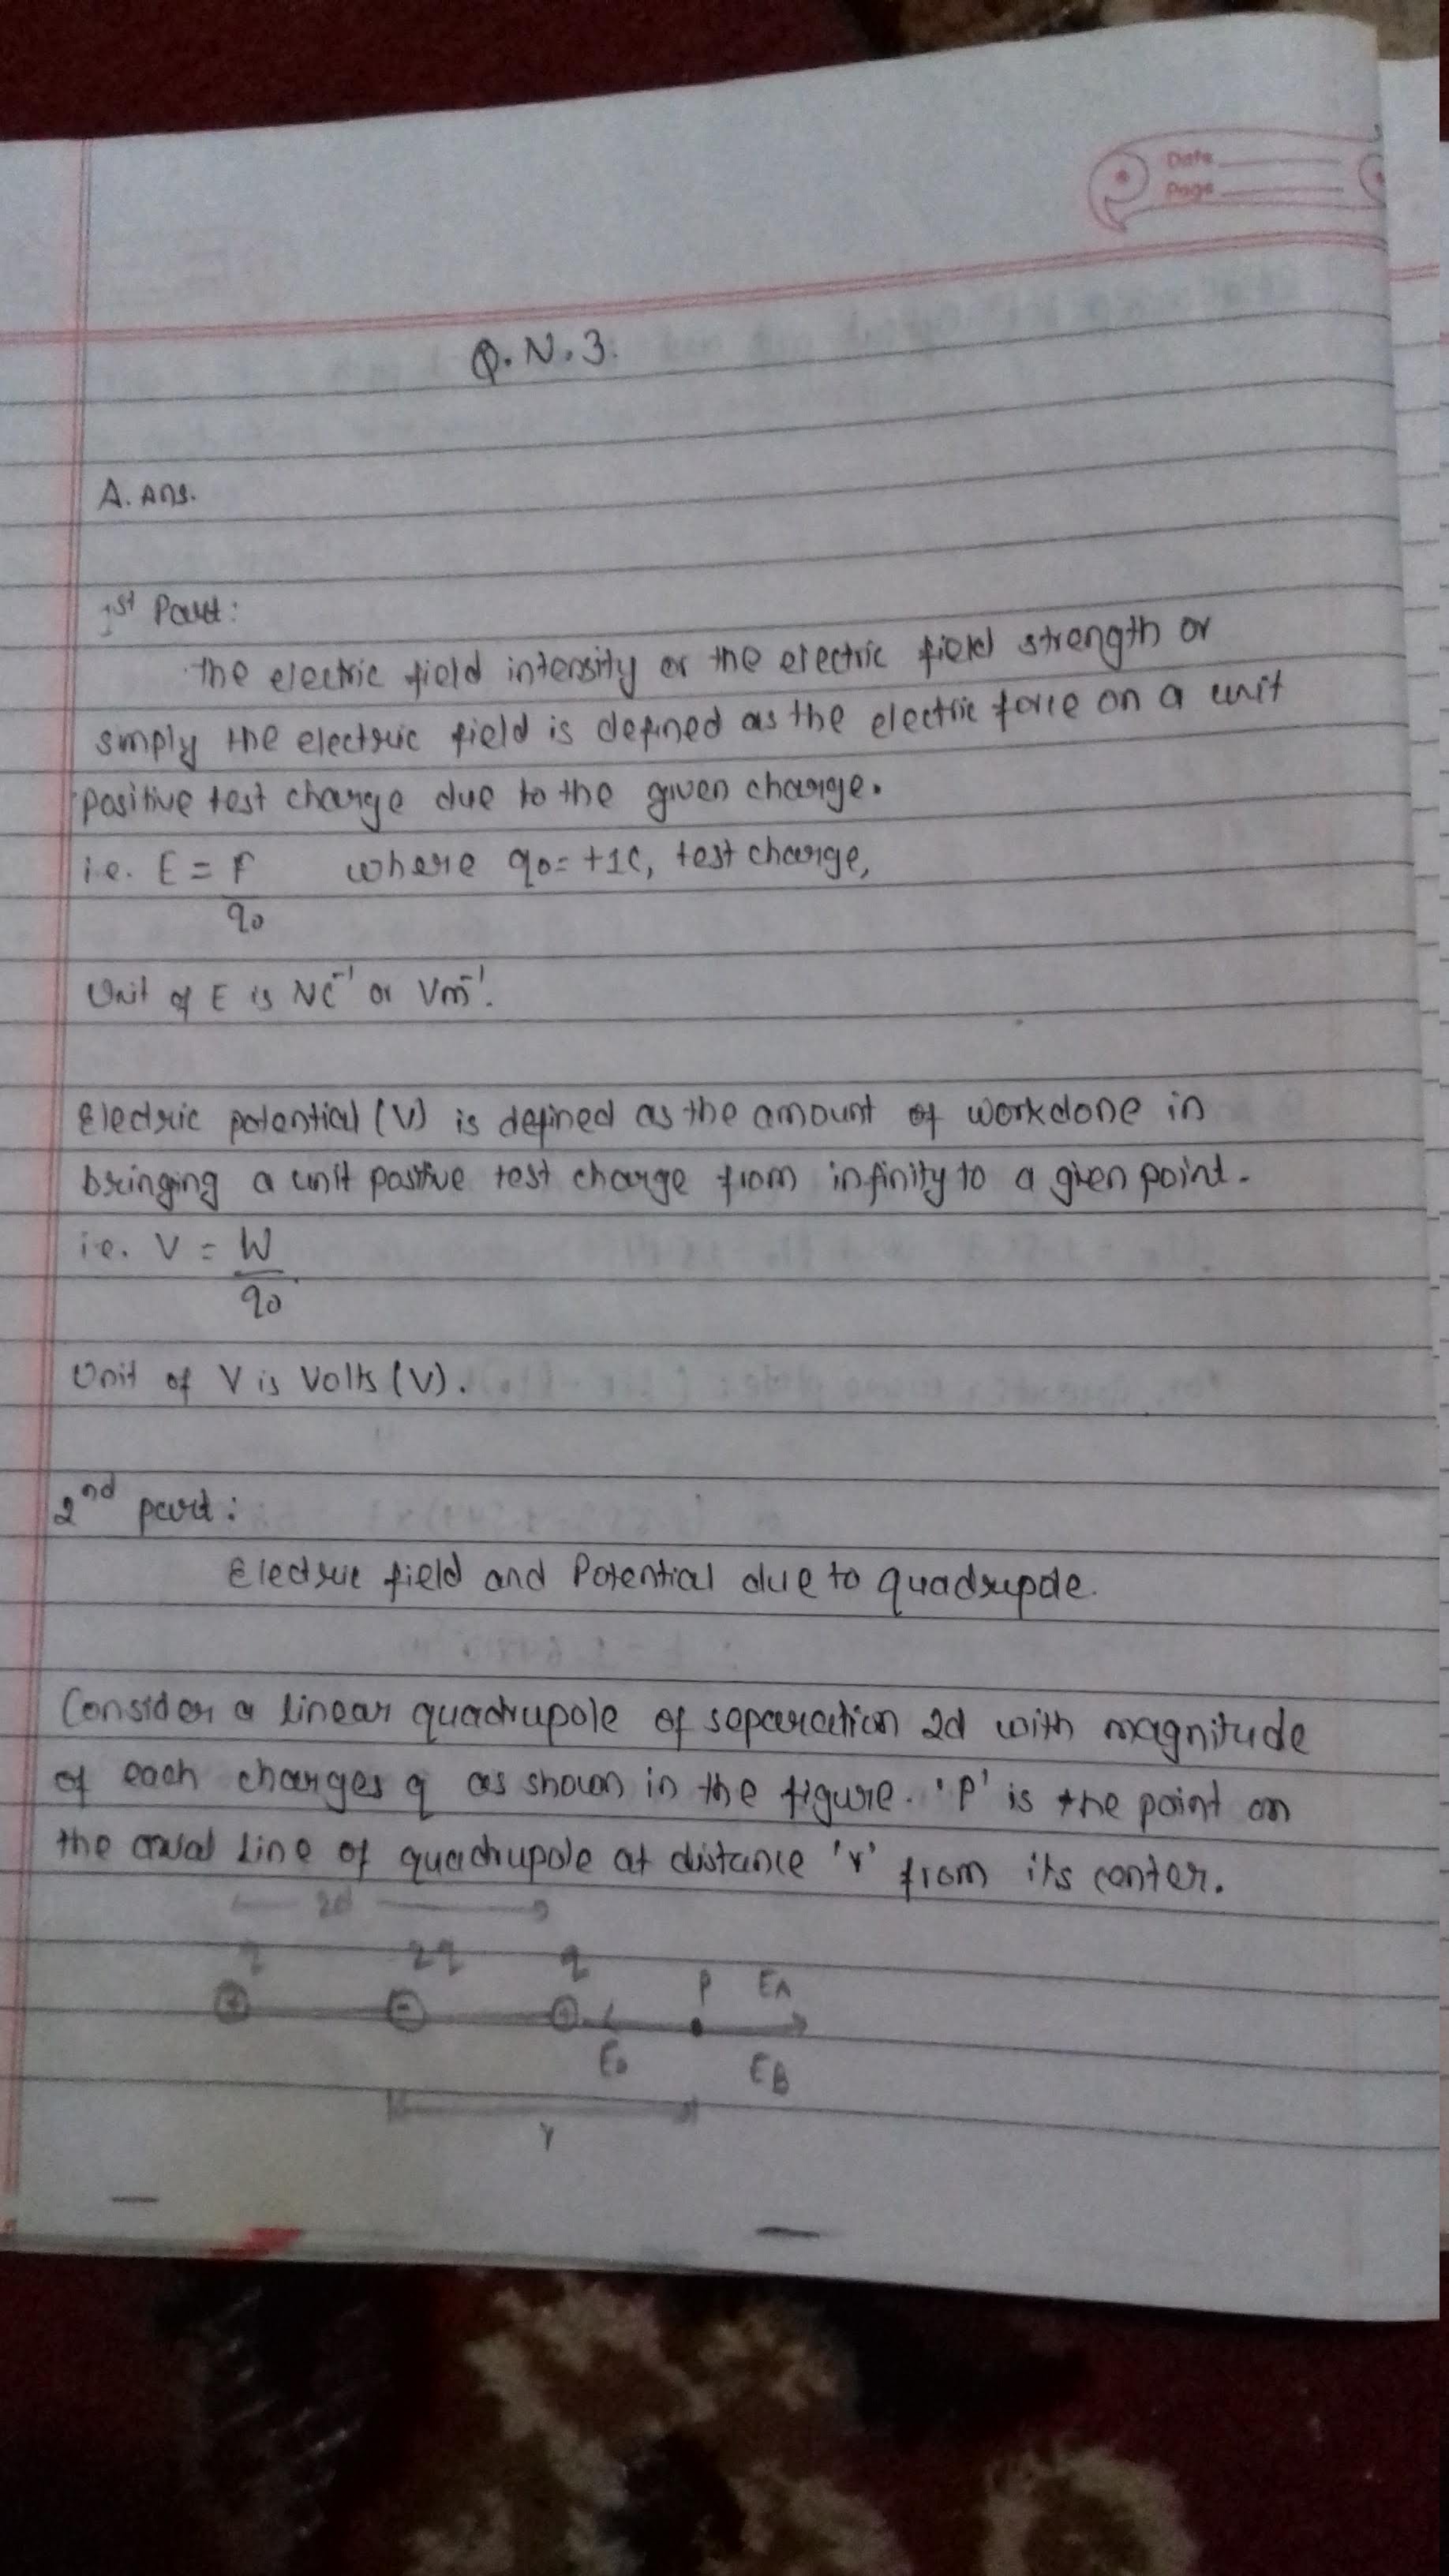 Date
Page
Q.N.3.
A. Ans.
1st Part:
The electric field intensity or the electric field strength or
simply the electric field is defined as the electric force on a unit
positive test charge due to the given charge.
i.e. E = F/q0 where q0 = +1C, test charge,
Unit of E is NC⁻¹ or Vm⁻¹.
Electric potential (V) is defined as the amount of workdone in
bringing a unit positive test charge from infinity to a given point.
i.e. V = W/q0
Unit of V is Volts (V).
2nd part:
Electric field and Potential due to quadrupole.
Consider a linear quadrupole of separation 2d with magnitude
of each charges q as shown in the figure. 'P' is the point on
the axial line of quadrupole at distance 'r' from its center.
2d
q 2q q
P EA
+ - +
E0 EB
r